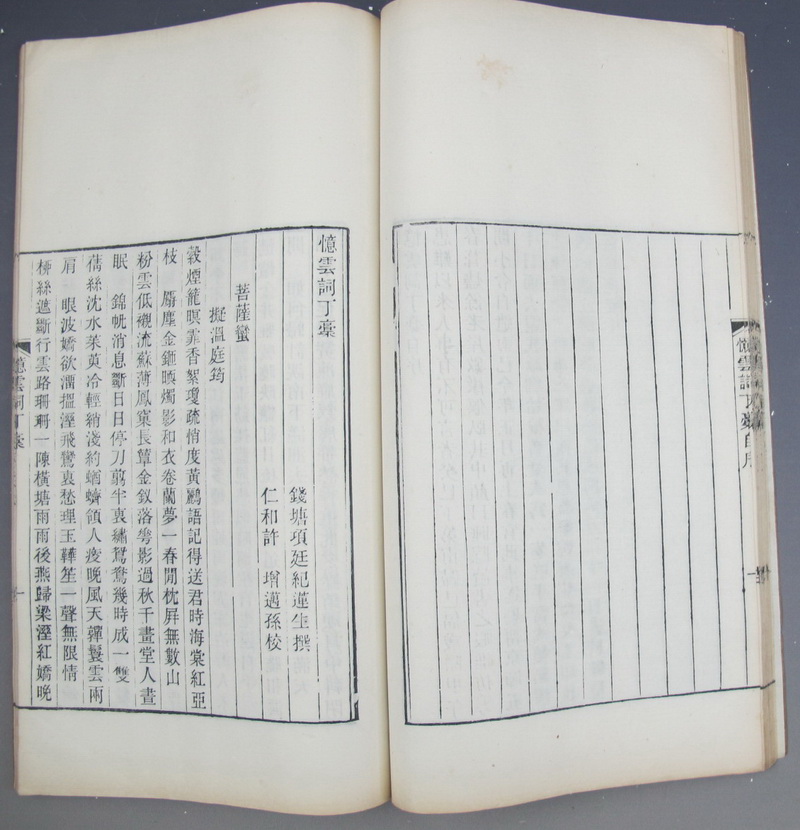 憶雲詞丁藁自序
一
憶雲詞丁藁
錢塘項廷紀蓮生撰
仁和許　增邁孫校
菩薩蠻
擬溫庭筠
縠煙籠暝霏香絮瓊疏悄度黃鸝語記得送君時海棠紅亞
枝　塵金鈿暎燭影和衣卷蘭夢一春閒枕屏無數山
粉雲低襯流蘇薄鳳窠長簟金釵落影過秋千畫堂人晝
眠　錦帆消息斷日日停刀翦半裏繡鴛鴦幾時成一雙
蒨絲沈水茱萸冷輕綃淺約蝤蠐領人疫晚風天嚲鬟雲兩
肩　眼波嬌欲溜搵溼飛鸞愁理玉鞾笙一聲無限情
柳絲遮斷行雲路珊珊一陳橫塘雨雨後燕歸梁溼紅嬌晚
憶雲詞丁藁
一